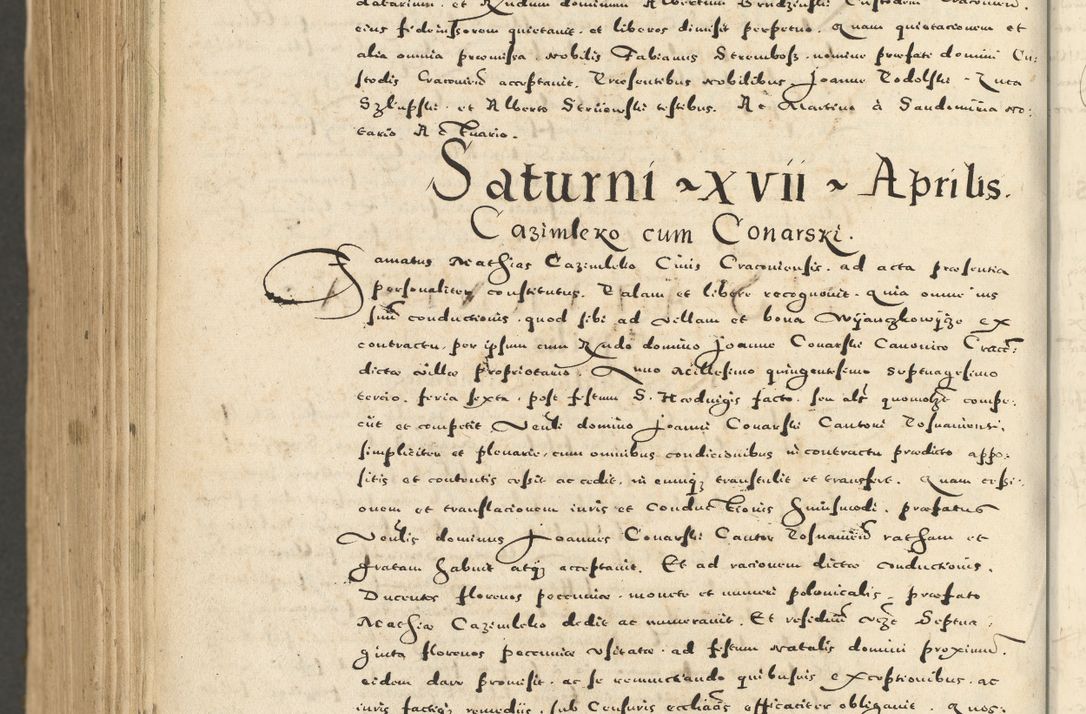 datarium et Rndum dominum Albertum Brudzinski Custodem Cracovien.
eius fideiussorem quietavit et liberos dimisit perpetuo. Quam quietacionem et
alia omnia præmissa nobilis Fabianus Strembosz nomine præfati domini Cu:
stodis Cracovien acceptavit. Præsentibus nobilibus Joanne Podolski
Szlupski et Alberto Struiowski testibus. Ac Martino à Sandomiria no:
tario Actuario.
Saturni ~ XVII ~ Aprilis.
Cazimierko cum Conarski.
Famatus Mathias Cazimierko Civis Cracoviensis ad acta præsentia
personaliter constitutus. Palam et libere recognovit. Quia omne ius
suum conductionis quod sibi ad villam et bona ex
contractu per ipsum cum Rndo domino Joanne Conarski Canonico Cracc:
dictæ villæ proprietario. Anno Millesimo quingentesimo septuagesimo
tercio feria sexta post festum S. Hedvigis facto seu als quomolzt compe:
tiit et competit Venli domino Joanni Conarski Cantori Posnaniensi.
simpliciter et plenarie, cum omnibus condicionibus in contractu prædicto appo:
sitis et contentis cessit ac cedit, in eumqz transtulit et transfert. Quam cessi:
onem et translacionem iuris et conductionis huiusmodi præfatus
Venlis dominus Joannes Conarski Cantor Posnanien ratham et
gratam habuit atqz acceptavit. Et ad racionem dictæ conductionis.
Ducentos florenos pecuniæ monete et numeri polonicalis præfato
Mathiæ Cazimierko dedit ac numeravit. Et residuum Septua:
ginta florenos pecuniæ usitatæ ad festum Natalis domini proximum.
eidem dare promisit, ac se renunctiando quibusvis exceptionibus ac
iuris factiqz remediis, sub Censuris eccliacis efficaciter obligavit. Quos